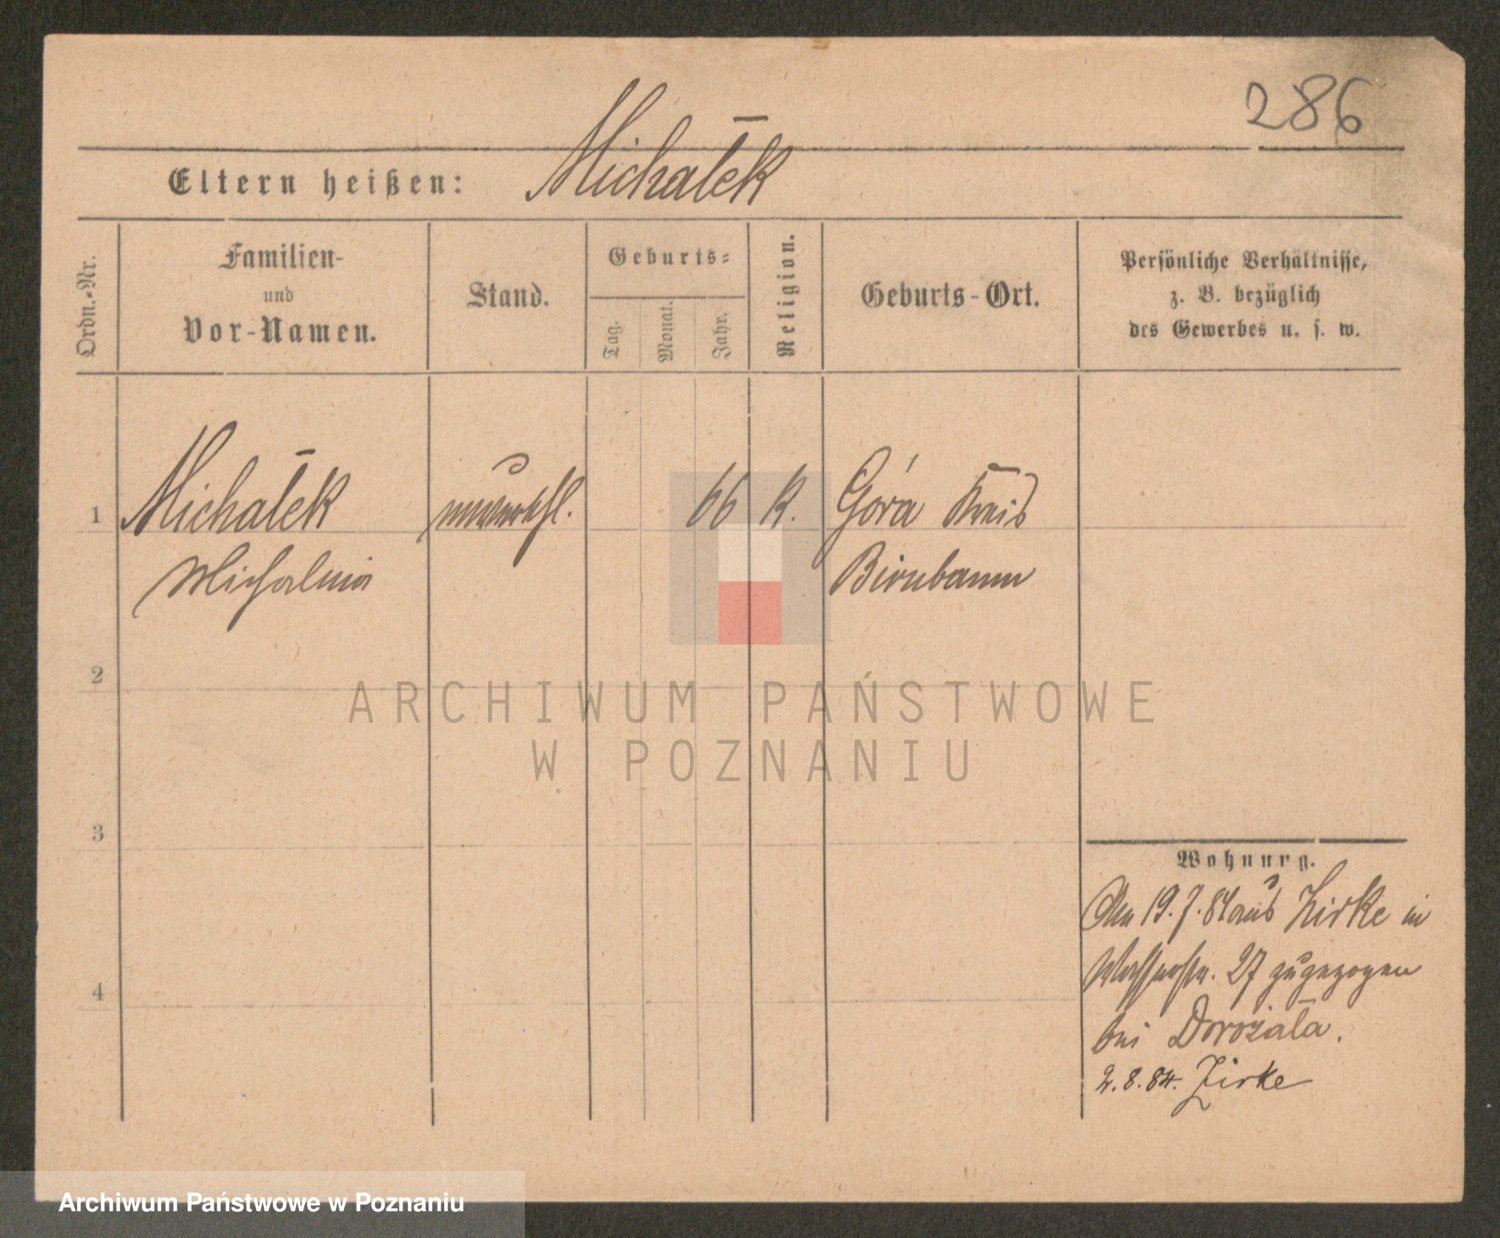 286
Eltern heißen: Michałek
Ordn.-Nr.
Familien-
und
Vor-Namen.
Stand.
Geburts-
Tag.
Monat.
Jahr.
Religion.
Geburts-Ort.
Persönliche Verhältnisse,
z. B. bezüglich
des Gewerbes u. s. w.
1 Michałek unverehl. 66 K. Góra Kreis
Michalina Birnbaum
2
3
4
Wohnung.
Am 19.7.84 aus Zirke in
27 zugezogen
bei Dorożała.
2.8.84. Zirke
ARCHIWUM PAŃSTWOWE
W POZNANIU
Archiwum Państwowe w Poznaniu